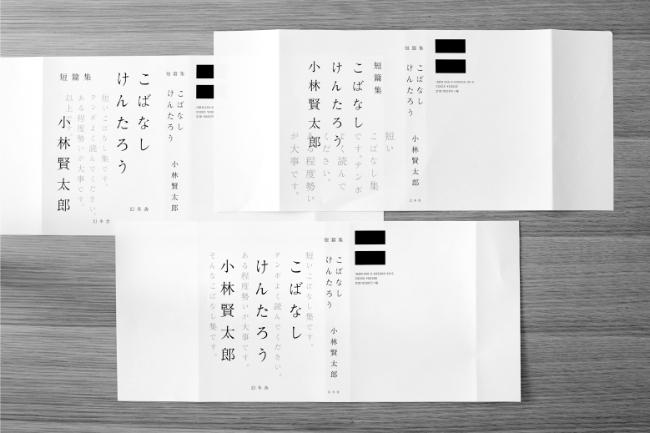 短篇集
こばなし
けんたろう
小林賢太郎
短篇集
こばなし
けんたろう
小林賢太郎
短いこばなし集です。
テンポよく読んでください。
ある程度勢いが大事です。
以上
幻冬舎
短篇集
こばなし
けんたろう
小林賢太郎
幻冬舎
短篇集
こばなし
けんたろう
小林賢太郎
短い
こばなし集
です。テンポ
よく読んで
ください。
ある程度勢い
が大事です。
短篇集
こばなし
けんたろう
小林賢太郎
幻冬舎
こばなし
けんたろう
小林賢太郎
短いこばなし集です。
テンポよく読んでください。
ある程度勢いが大事です。
そんなこばなし集です。
幻冬舎